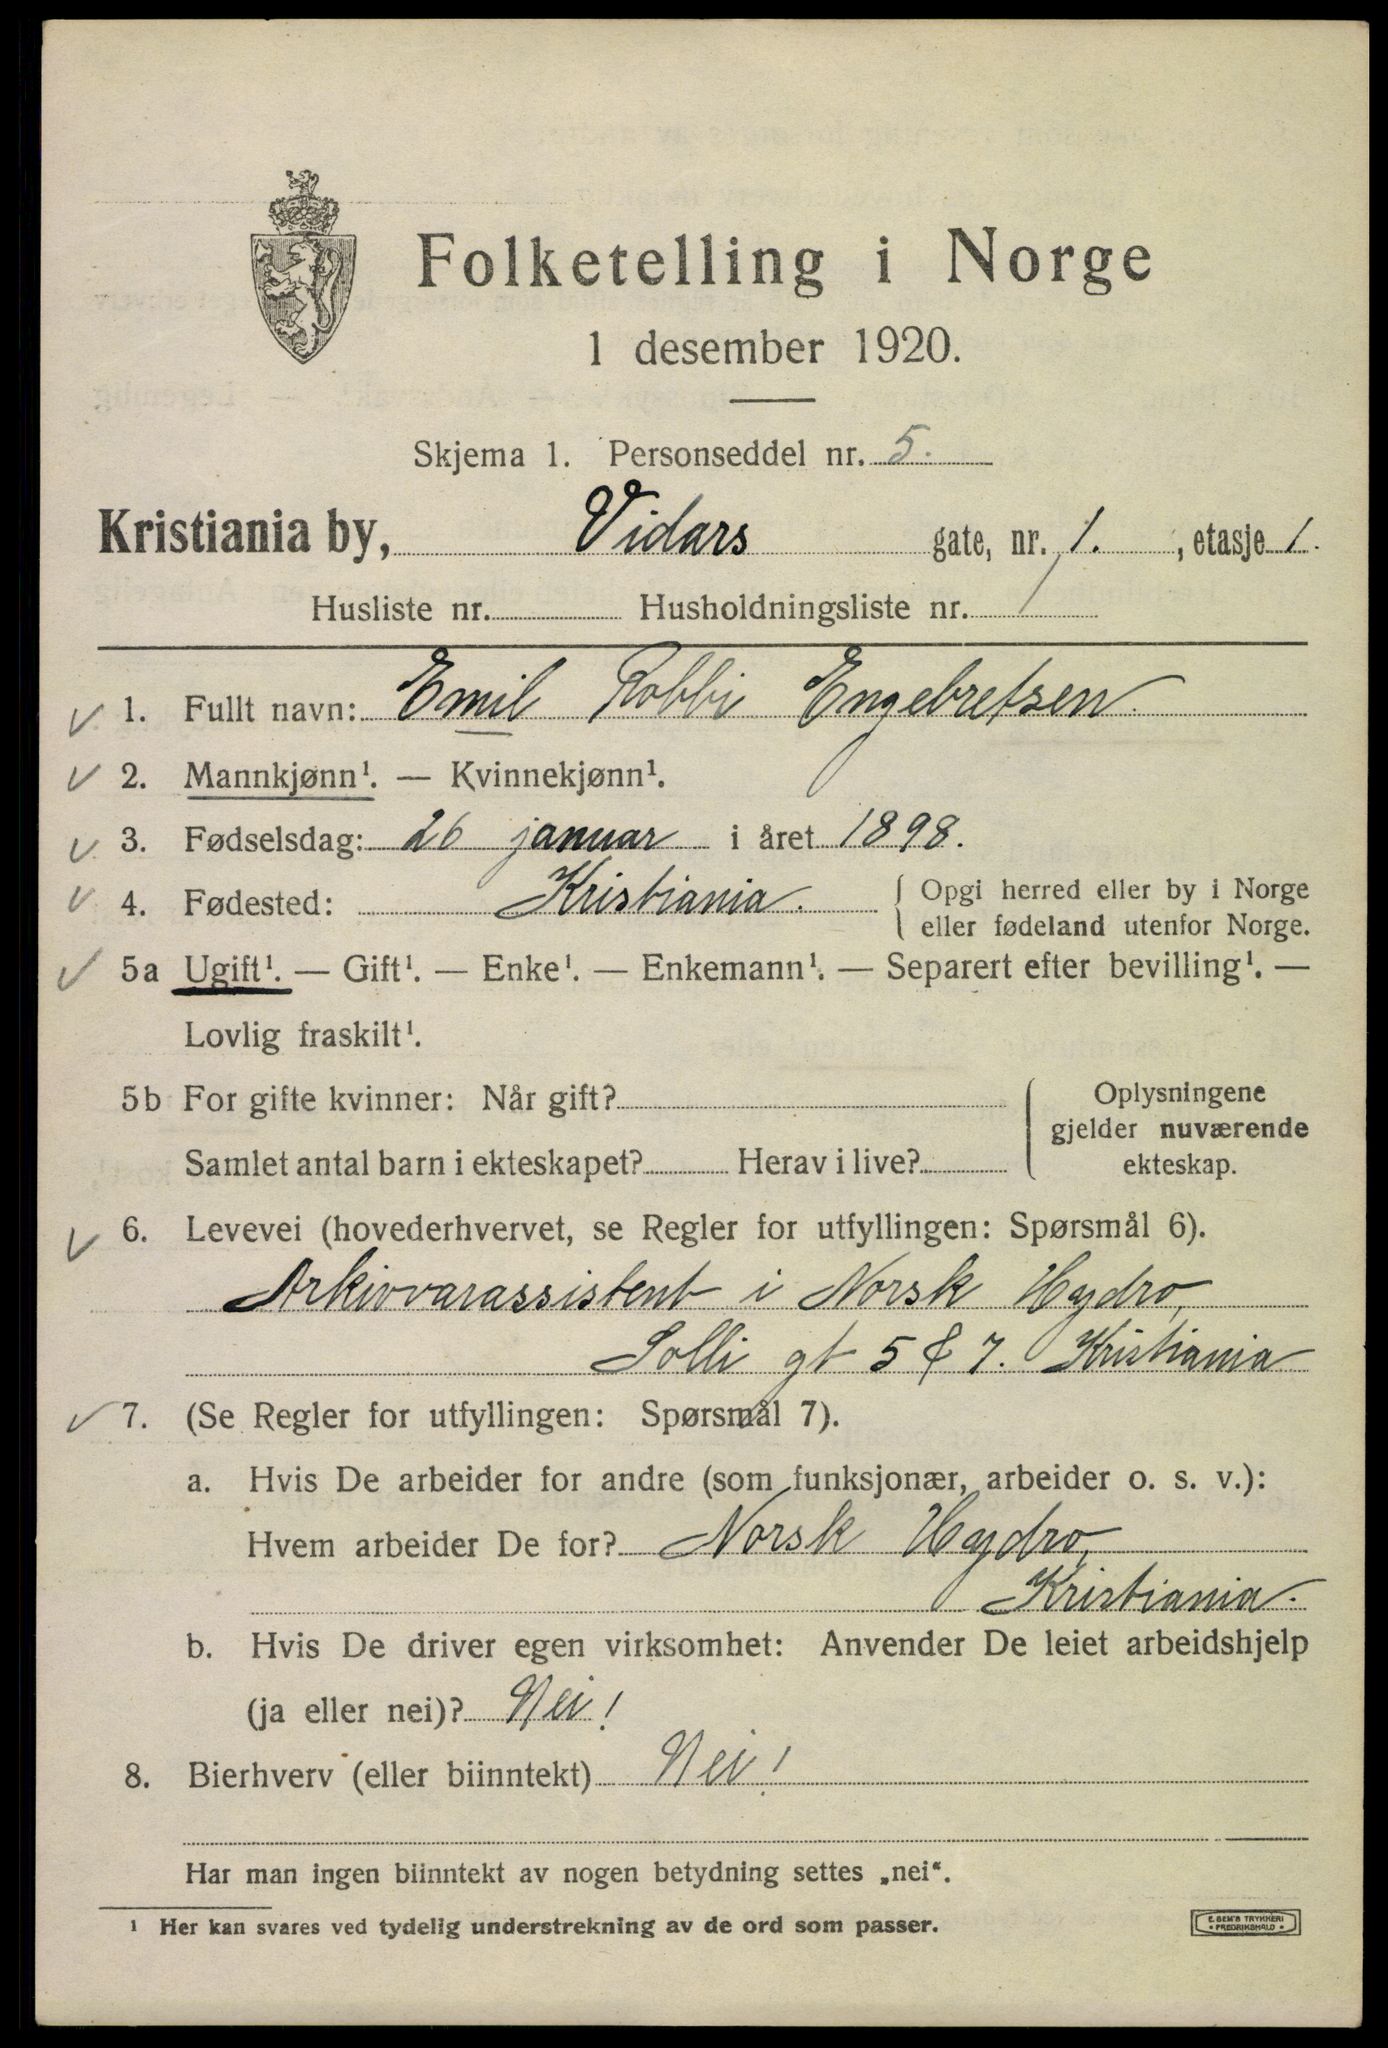 Folketelling i Norge
1 desember 1920.
Skjema 1. Personseddel nr. 5.
Kristiania by, Vidars gate, nr. 1. , etasje 1.
Husliste nr. Husholdningsliste nr. 1
1. Fullt navn: Emil Robbi Engebretsen.
2. Mannkjønn¹. — Kvinnekjønn¹.
3. Fødselsdag: 26 januar i året 1898.
4. Fødested: Kristiania. { Opgi herred eller by i Norge
eller fødeland utenfor Norge.
5a Ugift¹. — Gift¹. — Enke¹. — Enkemann¹. — Separert efter bevilling¹. —
Lovlig fraskilt¹.
5b For gifte kvinner: Når gift? Oplysningene
gjelder nuværende
Samlet antal barn i ekteskapet? Herav i live? ekteskap.
6. Levevei (hovederhvervet, se Regler for utfyllingen: Spørsmål 6).
Arkivvarassistent i Norsk Hydro,
Solli gt 5 & 7. Kristiania
7. (Se Regler for utfyllingen: Spørsmål 7).
a. Hvis De arbeider for andre (som funksjonær, arbeider o. s. v.):
Hvem arbeider De for? Norsk Hydro,
Kristiania.
b. Hvis De driver egen virksomhet: Anvender De leiet arbeidshjelp
(ja eller nei)? Nei!
8. Bierhverv (eller biinntekt) Nei!
Har man ingen biinntekt av nogen betydning settes „nei“.
¹ Her kan svares ved tydelig understrekning av de ord som passer.
E. SEM'S TRYKKERI
FREDRIKSHALD